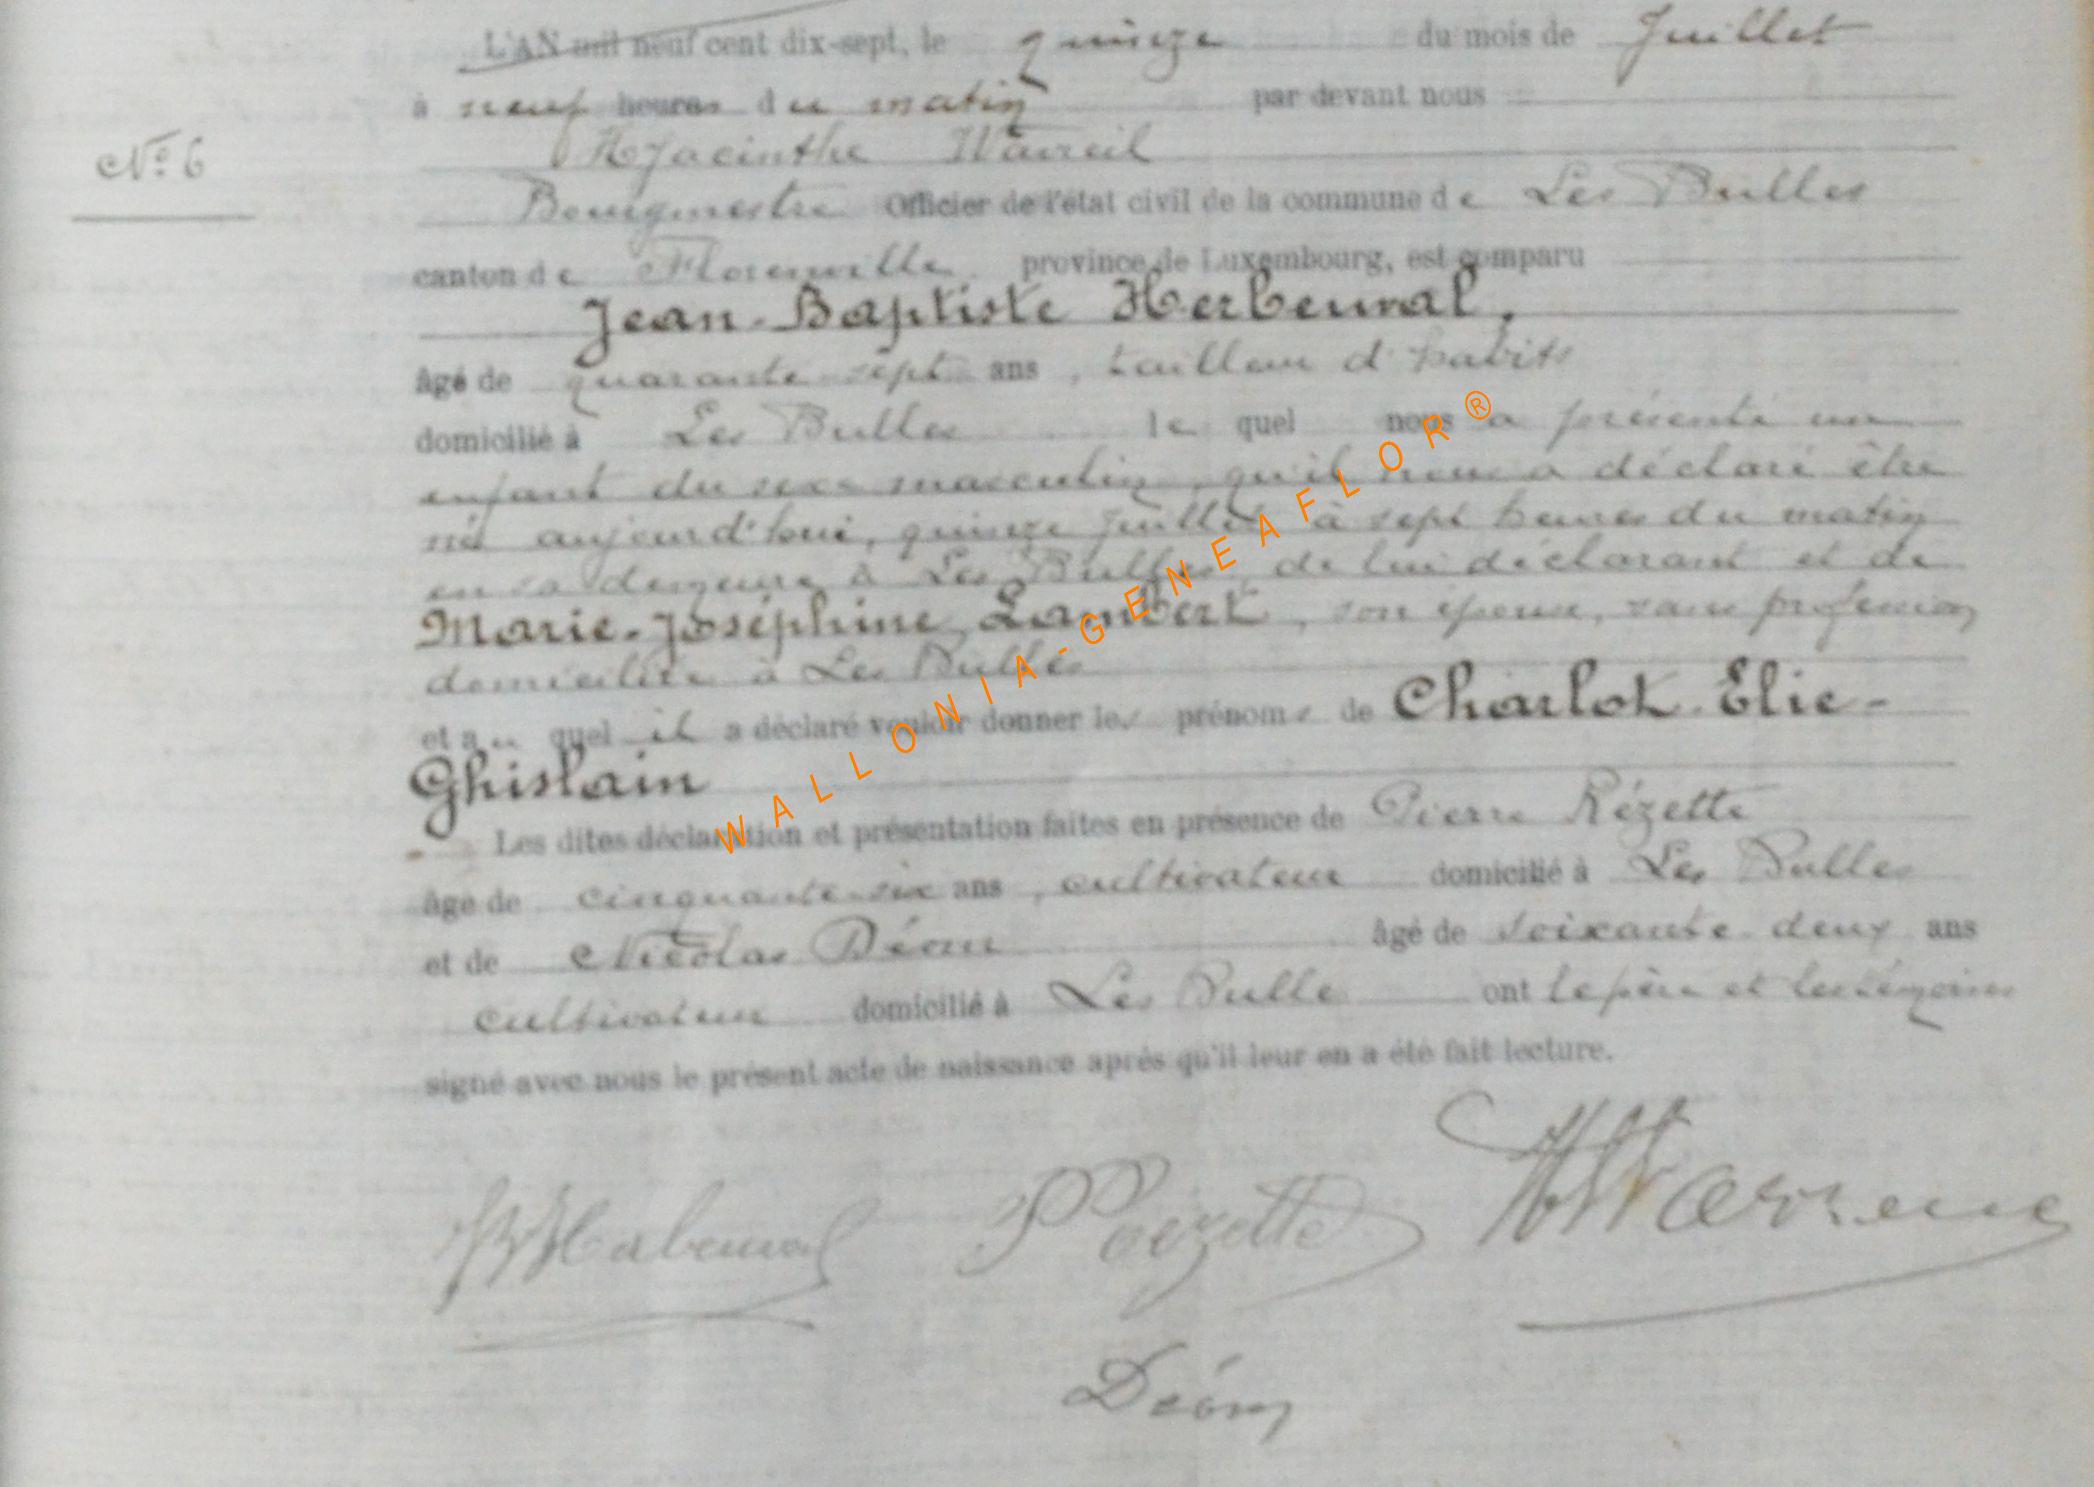 L'AN mil neuf cent dix-sept, le quinze du mois de Juillet
à neuf heures du matin par devant nous
N° 6
Hyacinthe
Bourgmestre Officier de l'état civil de la commune de Les Bulles
canton de Florenville province de Luxembourg, est comparu
Jean-Baptiste Herbeuval,
âgé de quarante-sept ans, tailleur d'habits
domicilié à Les Bulles lequel nous a présenté un
enfant du sexe masculin, qu'il nous a déclaré être
né aujourd'hui, quinze Juillet à sept heures du matin
en sa demeure à Les Bulles, de lui déclarant et de
Marie-Joséphine Lambert, son épouse, sans profession
domiciliée à Les Bulles
et au quel il a déclaré vouloir donner les prénoms de Charlot-Elie-
Ghislain
Les dites déclaration et présentation faites en présence de Pierre Rézette
âgé de cinquante-six ans, cultivateur domicilié à Les Bulles
et de Nicolas Déom âgé de soixante-deux ans
cultivateur domicilié à Les Bulles ont le père et les témoins
signé avec nous le présent acte de naissance après qu'il leur en a été fait lecture.
Déom
WALLONIA-GENEAFLOR®